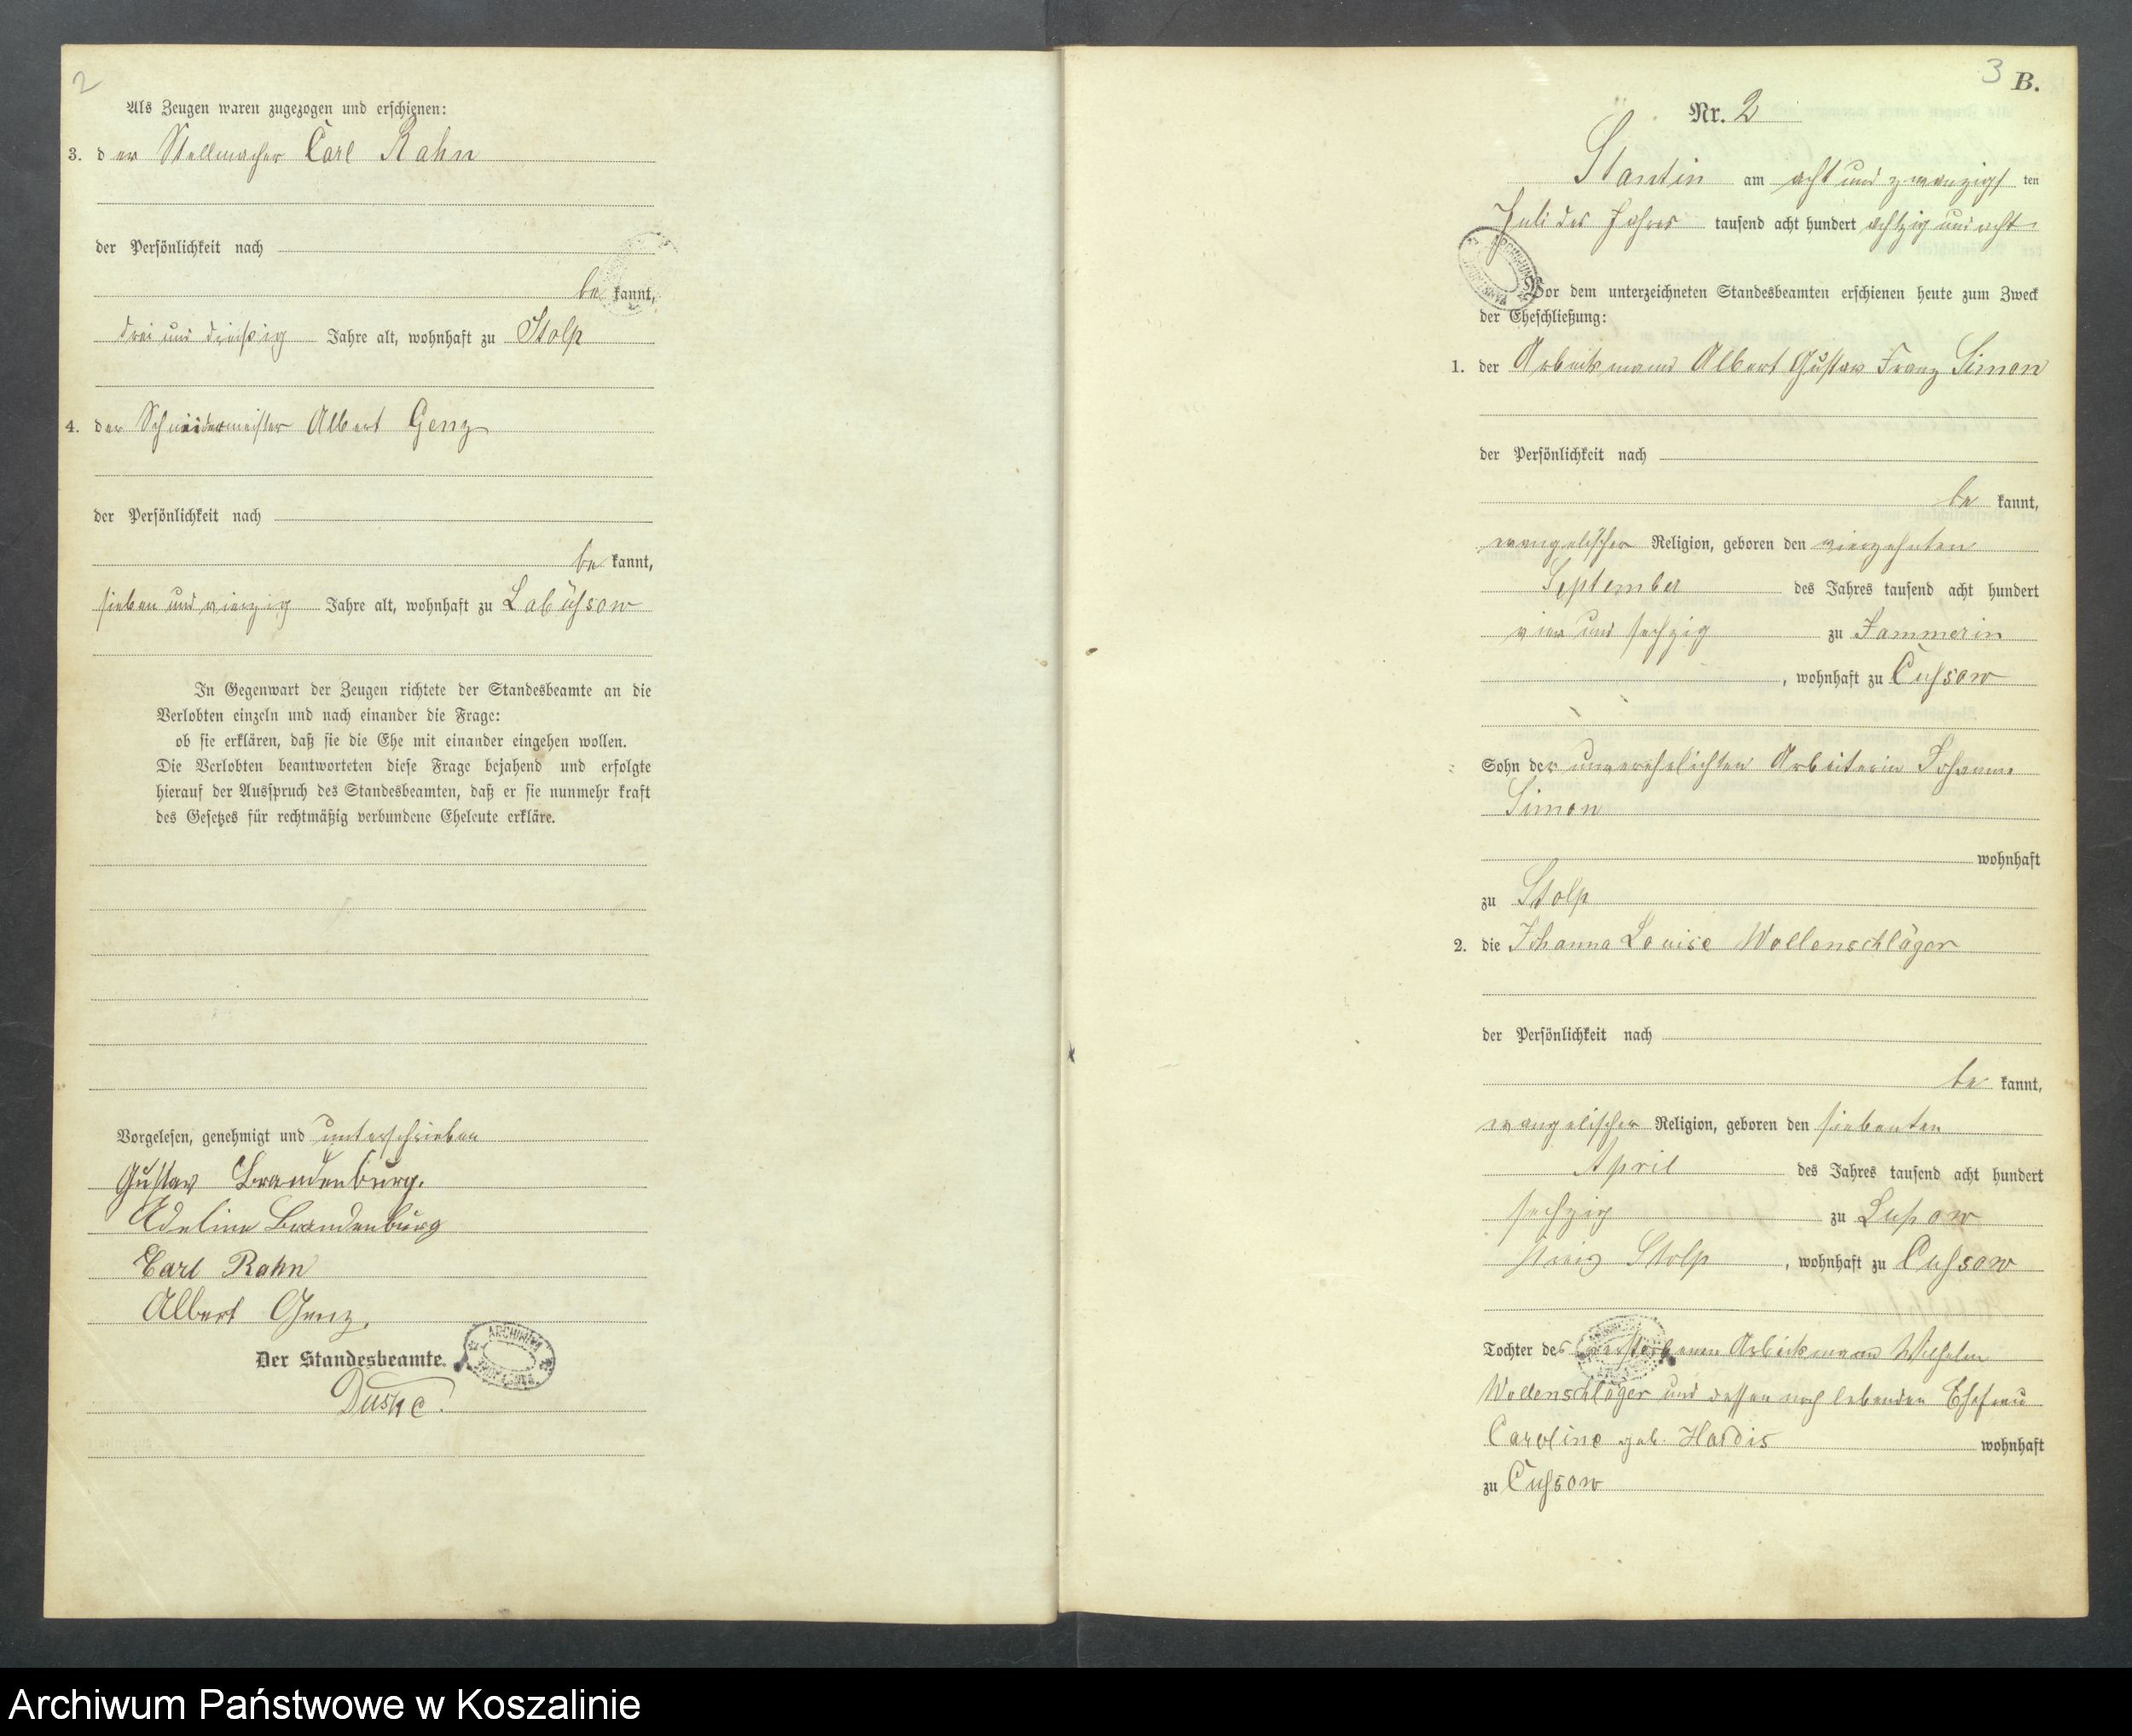 2
Als Zeugen waren zugezogen und erschienen:
3. der Stellmacher Carl Rahn
der Persönlichkeit nach
bekannt,
drei und dreißig Jahre alt, wohnhaft zu Stolp
4. der Schneidermeister Albert Genz
der Persönlichkeit nach
bekannt,
sieben und vierzig Jahre alt, wohnhaft zu Labuhsow
In Gegenwart der Zeugen richtete der Standesbeamte an die
Verlobten einzeln und nach einander die Frage:
ob sie erklären, daß sie die Ehe mit einander eingehen wollen.
Die Verlobten beantworteten diese Frage bejahend und erfolgte
hierauf der Ausspruch des Standesbeamten, daß er sie nunmehr kraft
des Gesetzes für rechtmäßig verbundene Eheleute erkläre.
Vorgelesen, genehmigt und unterschrieben
Gustav Brandenburg.
Adeline Brandenburg
Carl Rahn
Albert Genz.
Der Standesbeamte.
ARCHIWUM
Duske.
3 B.
Nr. 2
Stantin am acht und zwanzigsten
Juli des Jahres tausend acht hundert achtzig und acht
ARCHIWUM
Vor dem unterzeichneten Standesbeamten erschienen heute zum Zweck
der Eheschließung:
1. der Arbeitsmann Albert Gustav Franz Simon
der Persönlichkeit nach
bekannt,
evangelischer Religion, geboren den vierzehnten
September des Jahres tausend acht hundert
vier und sechzig zu Jammerin
, wohnhaft zu Cussow
Sohn der unverehelichten Arbeiterin Johanne
Simon
wohnhaft
zu Stolp
2. die Johanna Louise Wollenschläger
der Persönlichkeit nach
bekannt,
evangelischer Religion, geboren den siebenten
April des Jahres tausend acht hundert
sechzig zu Lupow
Kreis Stolp, wohnhaft zu Cussow
Tochter des verstorbenen Arbeitsmann Wilhelm
Wollenschläger und dessen noch lebenden Ehefrau
Caroline geb. Hardis wohnhaft
zu Cussow
Archiwum Państwowe w Koszalinie